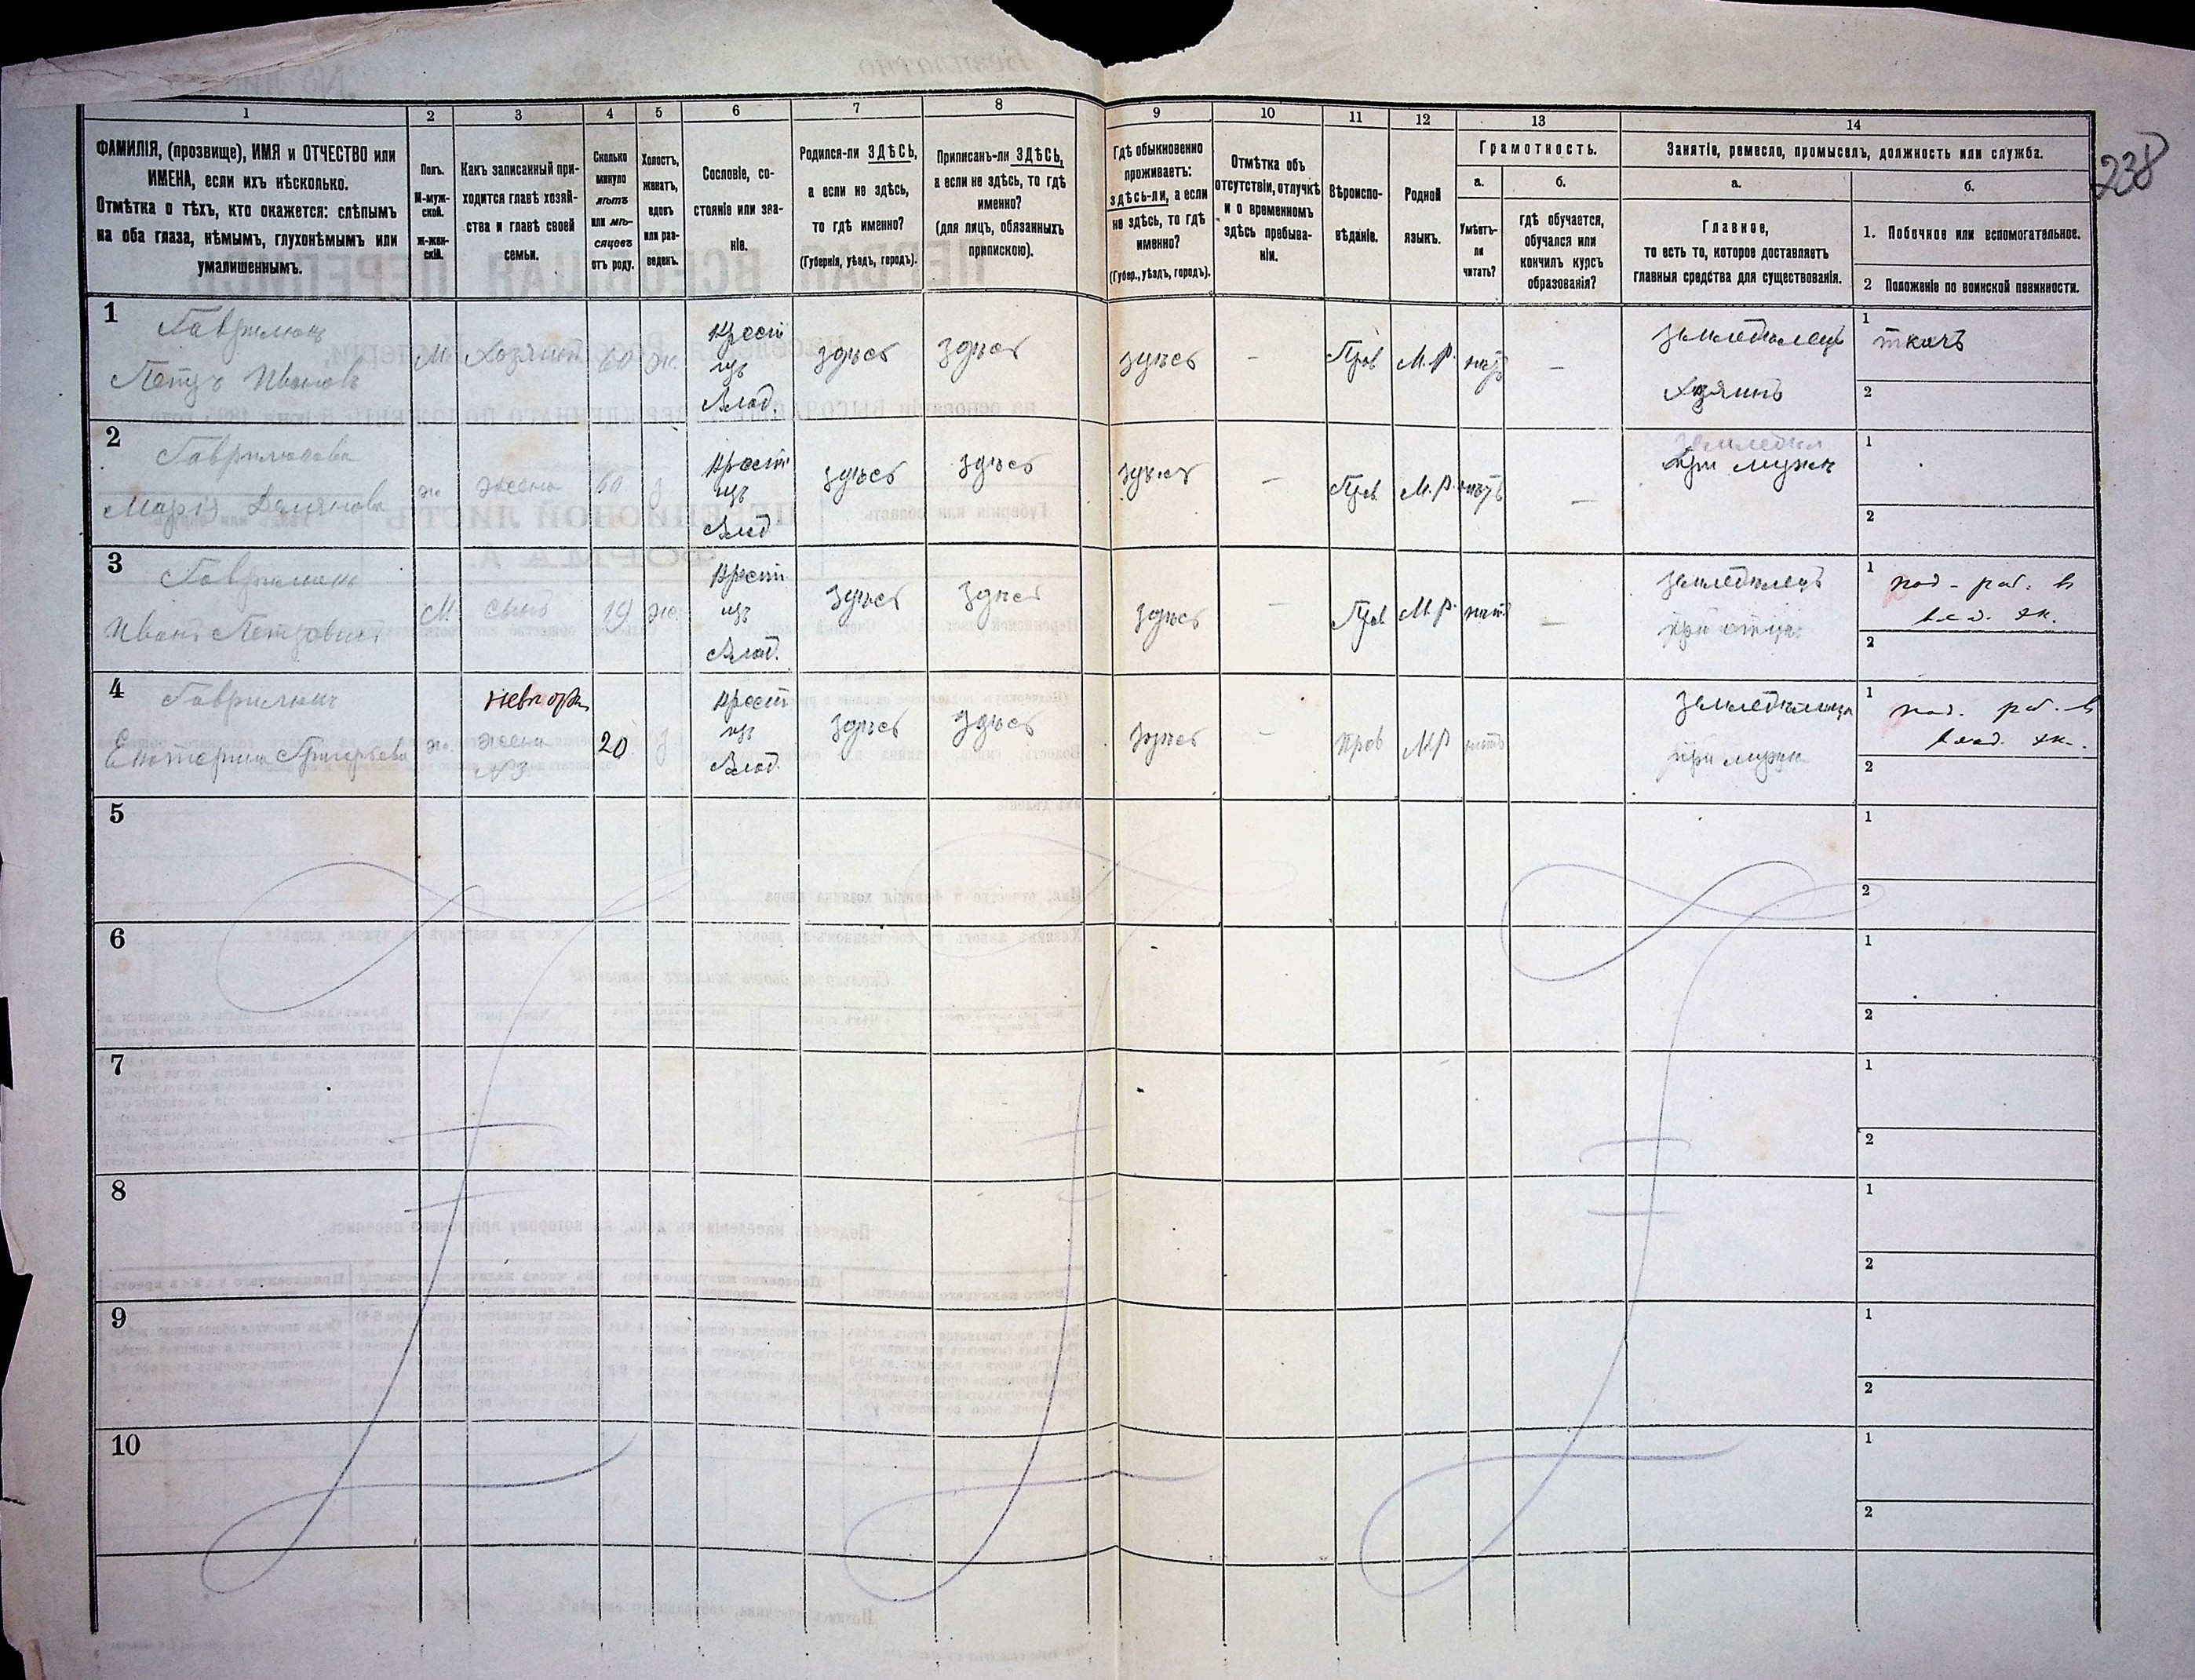 238
1
2
3
4
5
6
7
8
9
10
11
12
13
14
ФАМИЛІЯ, (прозвище), ИМЯ и ОТЧЕСТВО или
ИМЕНА, если ихъ нѣсколько.
Отмѣтка о тѣхъ, кто окажется: слѣпымъ
на оба глаза, нѣмымъ, глухонѣмымъ или
умалишеннымъ.
Полъ.
М-муж-
ской.
ж-жен-
скій.
Какъ записанный при-
ходится главѣ хозяй-
ства и главѣ своей
семьи.
Сколько
минуло
лѣтъ
или мѣ-
сяцевъ
отъ роду.
Холостъ,
женатъ,
вдовъ
или раз-
веденъ.
Сословіе, со-
стояніе или зва-
ніе.
Родился-ли ЗДѢСЬ,
а если не здѣсь,
то гдѣ именно?
(Губернія, уѣздъ, городъ).
Приписанъ-ли ЗДѢСЬ,
а если не здѣсь, то гдѣ
именно?
(для лицъ, обязанныхъ
припискою).
Гдѣ обыкновенно
проживаетъ:
здѣсь-ли, а если
не здѣсь, то гдѣ
именно?
(Губер., уѣздъ, городъ).
Отмѣтка объ
отсутствіи, отлучкѣ
и о временномъ
здѣсь пребыва-
ніи.
Вѣроиспо-
вѣданіе.
Родной
языкъ.
Грамотность.
а.
б.
Умѣетъ-
ли
читать?
гдѣ обучается,
обучался или
кончилъ курсъ
образованія?
Занятіе, ремесло, промыселъ, должность или служба.
а.
б.
Главное,
то есть то, которое доставляетъ
главныя средства для существованія.
1. Побочное или вспомогательное.
2 Положеніе по воинской повинности.
1
Гаврилюкъ
Петръ Ивановъ
М.
Хозяинъ
60
ж.
Крест
изъ
Влад.
здѣсь
здѣсь
здѣсь
–
Прав
М.Р.
нѣтъ
–
земледѣлецъ
Хозяинъ
1
ткачъ
2
2
Гаврилюкова
Марія
ж.
жена
60
з
Крест
изъ
Влад
здѣсь
здѣсь
здѣсь
–
Прав.
М.Р.
нѣтъ
–
при мужѣ
1
2
3
Гаврилюкъ
Иванъ Петровичъ
М.
сынъ
19
ж.
Крест
изъ
Влад.
здѣсь
здѣсь
здѣсь
–
Прав
М.Р.
нѣтъ
–
земледѣлецъ
при отцѣ
1
под - раб. въ
влад. эк.
2
4
Гаврилюкъ
Екатерина Григорьева
ж.
жена
№3
20
з
Крест
изъ
Влад.
здѣсь
здѣсь
здѣсь
–
Прав
М.Р
нѣтъ
земледѣлица
при мужѣ
1
под. раб. въ
влад. эк.
2
5
1
2
6
1
2
7
1
2
8
1
2
9
1
2
10
1
2